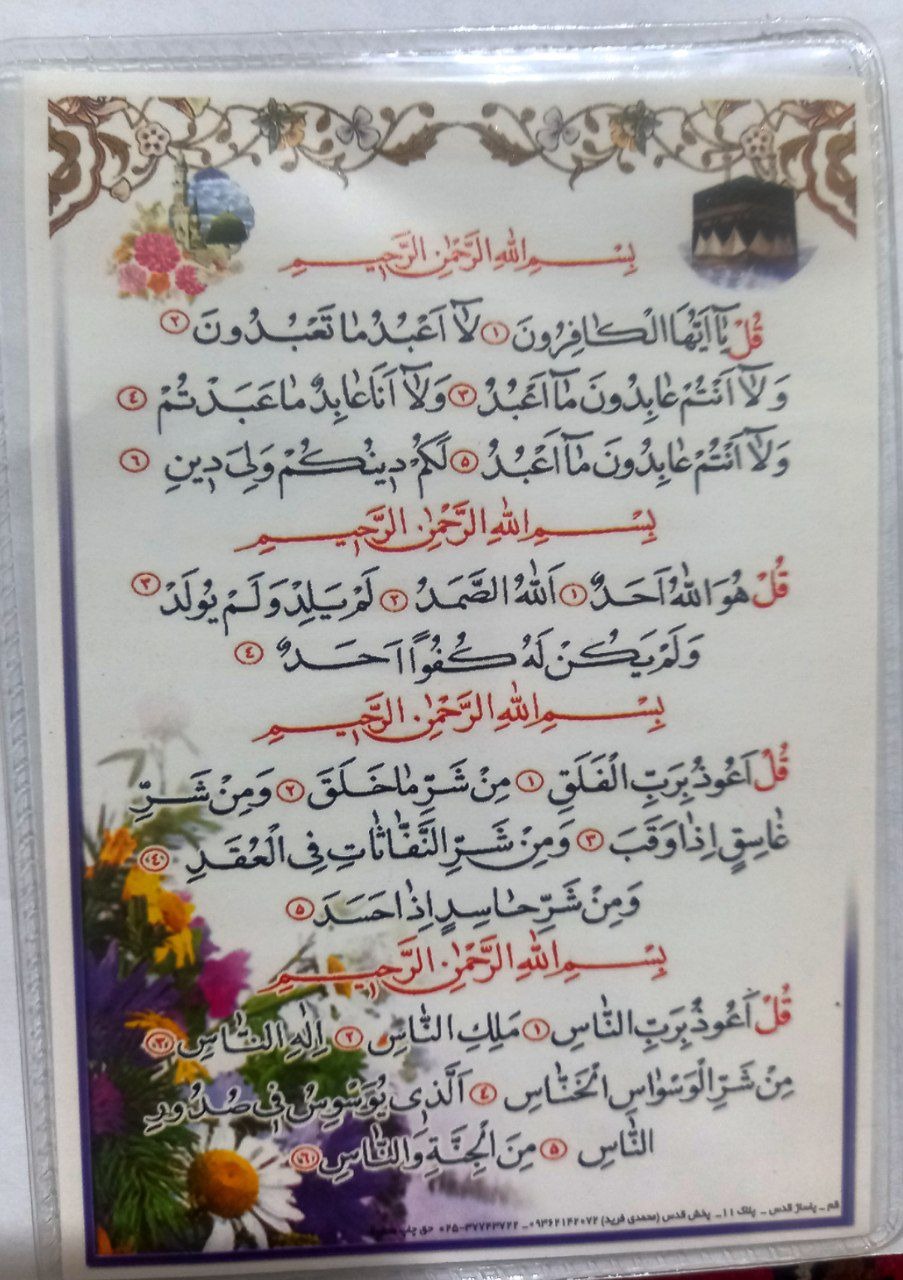 بِسْمِ اللهِ الرَّحْمٰنِ الرَّحيمِ
قُلْ يٰٓا اَيُّهَا الْكٰافِرُونَ ١ لٰٓا اَعْبُدُ مٰا تَعْبُدُونَ ٢
وَلٰٓا اَنْتُمْ عٰابِدُونَ مٰٓا اَعْبُدُ ٣ وَلٰٓا اَنَا عٰابِدٌ مٰا عَبَدْتُمْ ٤
وَلٰٓا اَنْتُمْ عٰابِدُونَ مٰٓا اَعْبُدُ ٥ لَكُمْ دينُكُمْ وَلِيَ دينِ ٦
بِسْمِ اللهِ الرَّحْمٰنِ الرَّحيمِ
قُلْ هُوَ اللهُ اَحَدٌ ١ اَللهُ الصَّمَدُ ٢ لَمْ يَلِدْ وَلَمْ يُولَدْ ٣
وَلَمْ يَكُنْ لَهُ كُفُوًا اَحَدٌ ٤
بِسْمِ اللهِ الرَّحْمٰنِ الرَّحيمِ
قُلْ اَعُوذُ بِرَبِّ الْفَلَقِ ١ مِنْ شَرِّ مٰا خَلَقَ ٢ وَمِنْ شَرِّ
غٰاسِقٍ اِذٰا وَقَبَ ٣ وَمِنْ شَرِّ النَّفّٰاثٰاتِ فِي الْعُقَدِ ٤
وَمِنْ شَرِّ حٰاسِدٍ اِذٰا حَسَدَ ٥
بِسْمِ اللهِ الرَّحْمٰنِ الرَّحيمِ
قُلْ اَعُوذُ بِرَبِّ النّٰاسِ ١ مَلِكِ النّٰاسِ ٢ اِلٰهِ النّٰاسِ ٣
مِنْ شَرِّ الْوَسْوٰاسِ الْخَنّٰاسِ ٤ اَلَّذي يُوَسْوِسُ في صُدُورِ
النّٰاسِ ٥ مِنَ الْجِنَّةِ وَالنّٰاسِ ٦
قم ـ پاساژ قدس ـ پلاک ١١ـ پخش قدس (محمدی فرید) ٠٩٣٦٢١٤٢٠٧٢ـ ٣٧٧٤٣٧٢٢-٠٢٥ حق چاپ